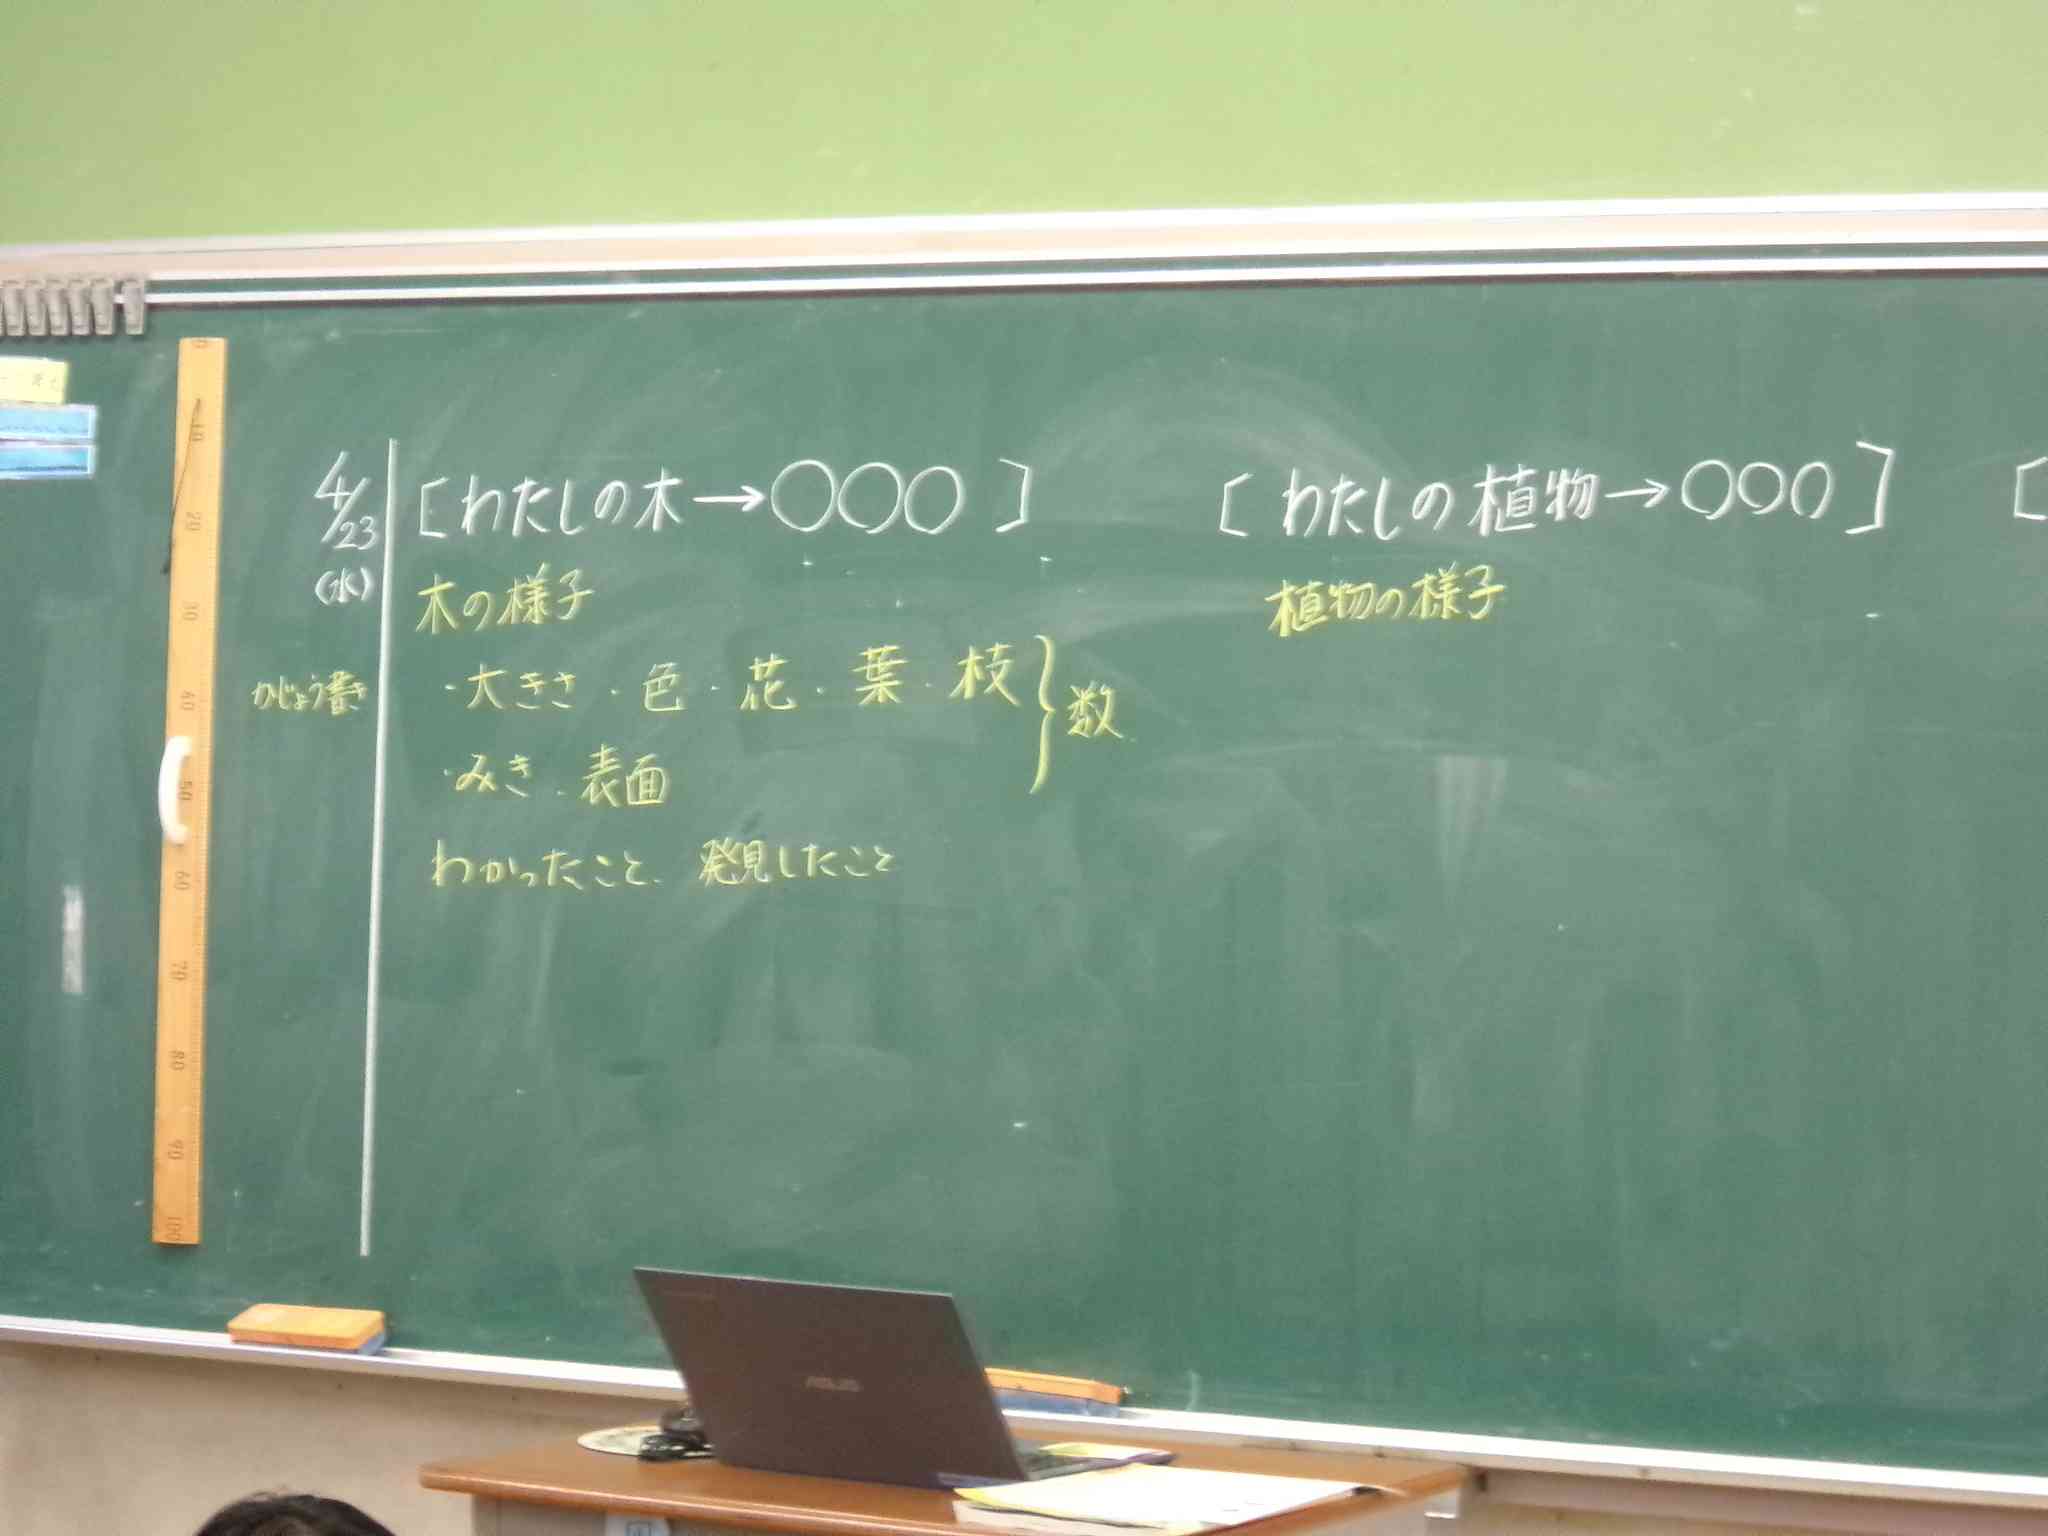 4/23
(水)
かじょう書き
[わたしの木→○○○]
木の様子
・大きさ・色・花・葉・枝 } 数
・みき・表面
わかったこと、発見したこと
[わたしの植物→○○○]
植物の様子
[
10
20
30
40
50
60
70
80
90
100
ASUS